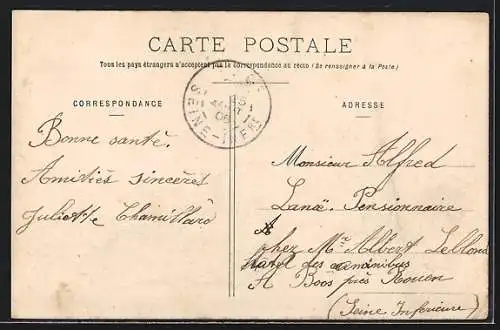 CARTE POSTALE
Tous les pays étrangers n'acceptent pas la correspondance au recto (Se renseigner à la Poste)
CORRESPONDANCE
ADRESSE
SEINE-INFRE
Bonne santé.
Amitiés sincères
Juliette Chamillard
Monsieur Alfred
Lanoë. Pensionnaire
chez Mr Albert Leblond
Hotel des omnibus
A Boos près Rouen
(Seine Inférieure)